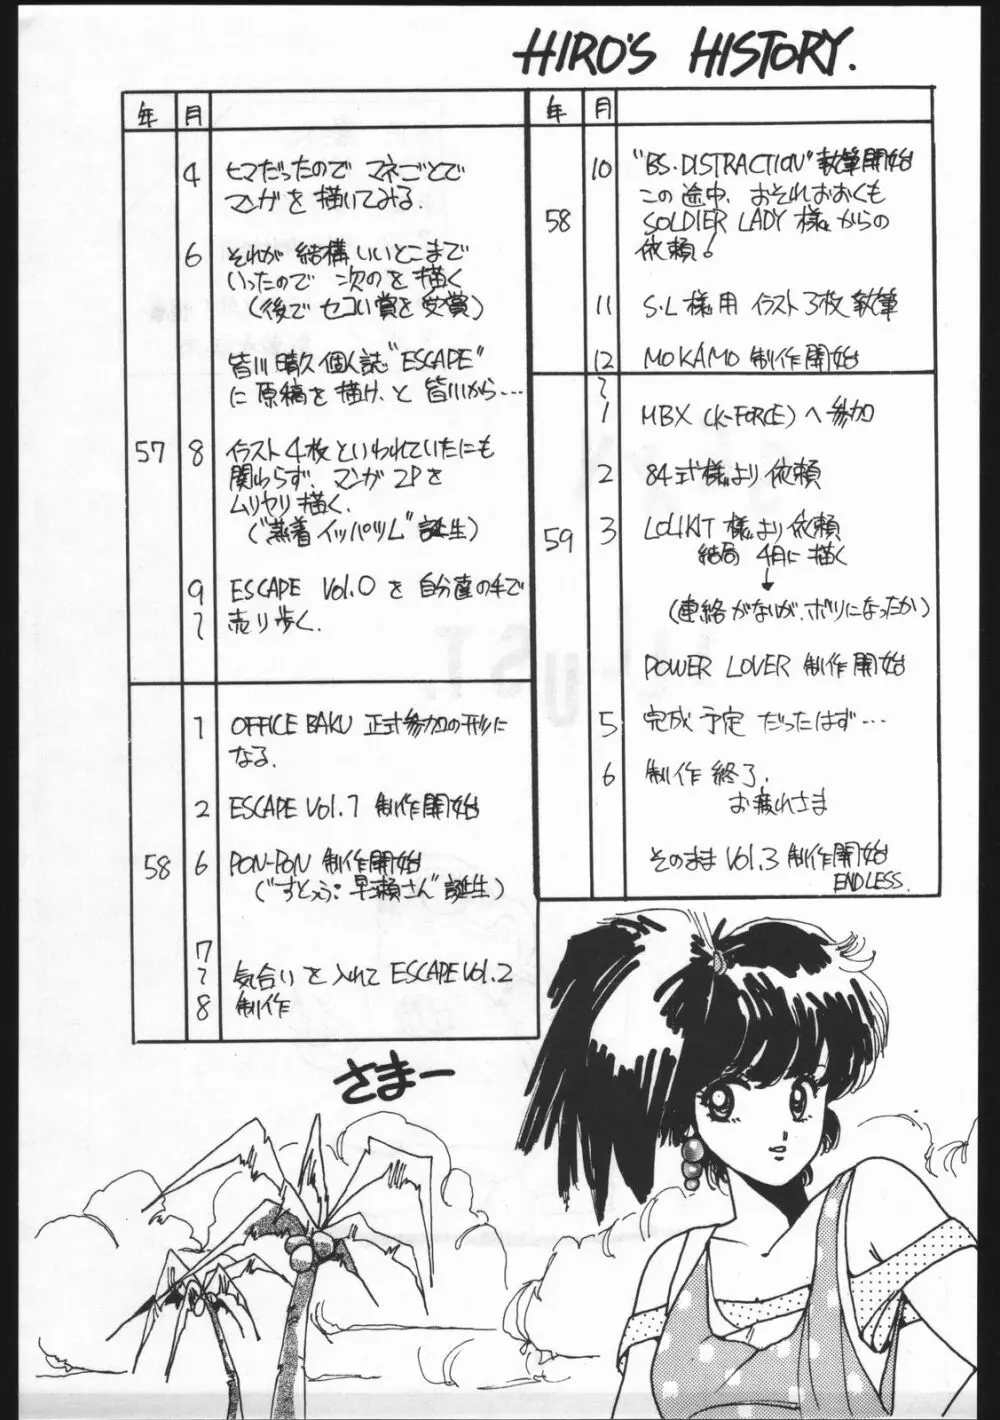 HIRO'S HISTORY.
年 月
4 ヒマだったので マネごとで
マンガを 描いてみる.
6 それが 結構いいとこまで
いったので 次のを 描く
(後で セコい賞を 受賞)
皆川 晴久 個人誌 "ESCAPE"
に 原稿を 描け、と 皆川から…
57 8 イラスト4枚といわれていたにも
関わらず、マンガ 2Pを
ムリヤリ 描く.
("蒸着イッパツム" 誕生)
9 ESCAPE Vol.0 を 自分達の手で
〜 売り歩く.
1 OFFICE BAKU 正式参加の形に
なる.
2 ESCAPE Vol.1 制作開始
58 6 PON-PON 制作開始
("すとろぅ・早瀬さん" 誕生)
7
〜 気合い を 入れて ESCAPE Vol.2
8 制作
年 月
10 "BS・DISTRACTION" 執筆開始
この 途中、おそれおおくも
58 SOLDIER LADY 様 からの
依頼!
11 S・L 様用 イラスト3枚 執筆
12 MOKAMO 制作開始
〜
1 MBX (K-FORCE) へ 参加
2 84式様より 依頼
59 3 LOLIKIT 様より 依頼
結局 4月に 描く
↓
(連絡がないが、ボツになったか)
POWER LOVER 制作開始
5 完成 予定 だったはず…
6 制作 終了.
お疲れさま
そのまま Vol.3 制作開始
ENDLESS.
さまー